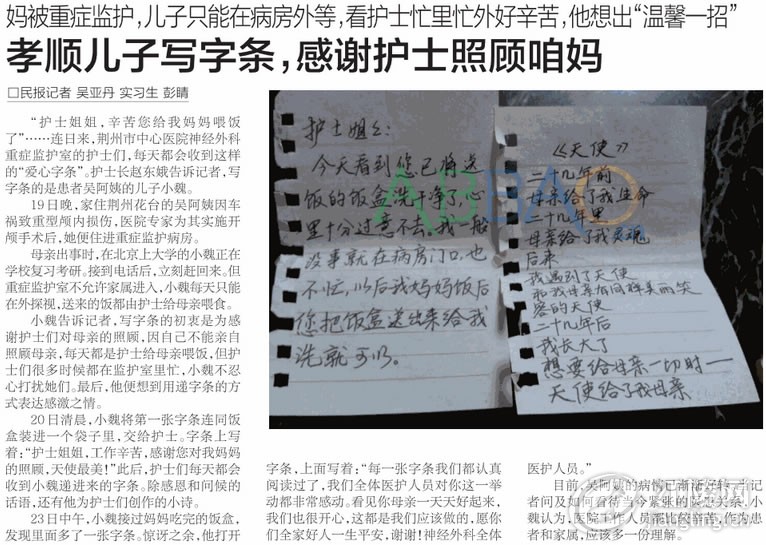 妈被重症监护，儿子只能在病房外等，看护士忙里忙外好辛苦，他想出“温馨一招”
孝顺儿子写字条，感谢护士照顾咱妈
□民报记者 吴亚丹 实习生 彭晴
“护士姐姐，辛苦您给我妈妈喂饭
了”……连日来，荆州市中心医院神经外科
重症监护室的护士们，每天都会收到这样
的“爱心字条”。护士长赵东娥告诉记者，写
字条的是患者吴阿姨的儿子小魏。
19日晚，家住荆州花台的吴阿姨因车
祸致重型颅内损伤，医院专家为其实施开
颅手术后，她便住进重症监护病房。
母亲出事时，在北京上大学的小魏正在
学校复习考研。接到电话后，立刻赶回来。但
重症监护室不允许家属进入，小魏每天只能
在外探视，送来的饭都由护士给母亲喂食。
小魏告诉记者，写字条的初衷是为感
谢护士们对母亲的照顾，因自己不能亲自
照顾母亲，每天都是护士给母亲喂饭，但护
士们很多时候都在监护室里忙，小魏不忍
心打扰她们。最后，他便想到用递字条的方
式表达感激之情。
20日清晨，小魏将第一张字条连同饭
盒装进一个袋子里，交给护士。字条上写
着：“护士姐姐，工作辛苦，感谢您对我妈妈
的照顾，天使最美！”此后，护士们每天都会
收到小魏递进来的字条。除感恩和问候的
话语，还有他为护士们创作的小诗。
23日中午，小魏接过妈妈吃完的饭盒，
发现里面多了一张字条。惊讶之余，他打开
护士姐姐：
今天看到您已将送
饭的饭盒洗干净，心
里十分过意不去。我一般
没事就在病房门口，也
不忙，以后我妈妈饭后
您把饭盒送出来给我
洗就可以。
《天使》
二十几年前
母亲给了我生命
二十几年里
母亲给了我灵魂
后来
我遇到了天使
和我母亲有同样美丽笑
容的天使
二十几年后
我长大了
想要给母亲一切时——
天使给了我母亲
ABBAO
字条，上面写着：“每一张字条我们都认真
阅读过了，我们全体医护人员对你这一举
动都非常感动。看见你母亲一天天好起来，
我们也很开心，这都是我们应该做的，愿你
们全家好人一生平安，谢谢！神经外科全体
医护人员。”
目前，吴阿姨的病情已渐渐好转。记
者问及如何看待当今紧张的医患关系，小
魏认为，医院工作人员都比较辛苦，作为患
者和家属，应该多一份理解。